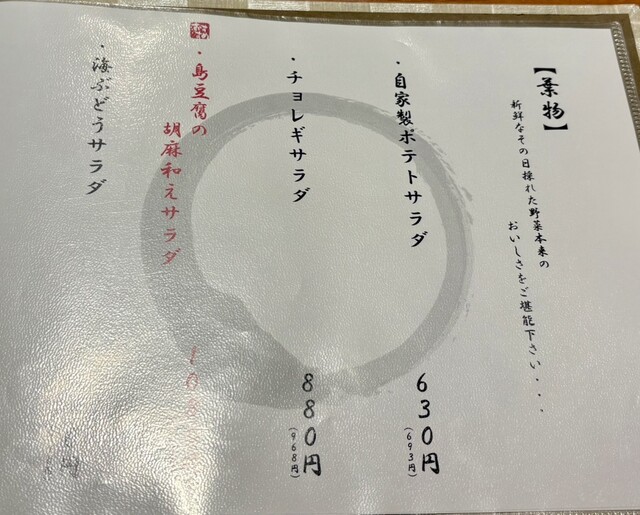 【葉物】
新鮮なその日採れた野菜本来の
おいしさをご堪能下さい・・・
・自家製ポテトサラダ
630円
(693円)
・チョレギサラダ
880円
(968円)
・島豆腐の
胡麻和えサラダ
・海ぶどうサラダ